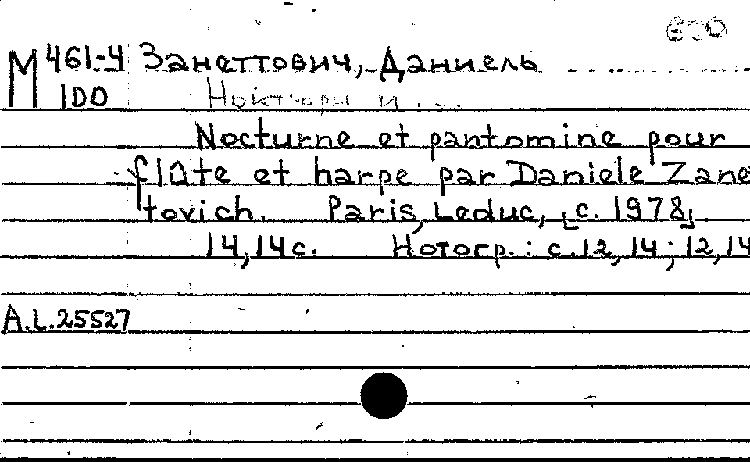 М 461-4 Занеттович, Даниель
100 Ноктюрн и ...
Nocturne et pantomine pour
flûte et harpe par Daniele Zane
tovich. Paris, Leduc, [c. 1978]
14, 14 с. Нотогр.: с. 12, 14; 12, 14
A.L.25527